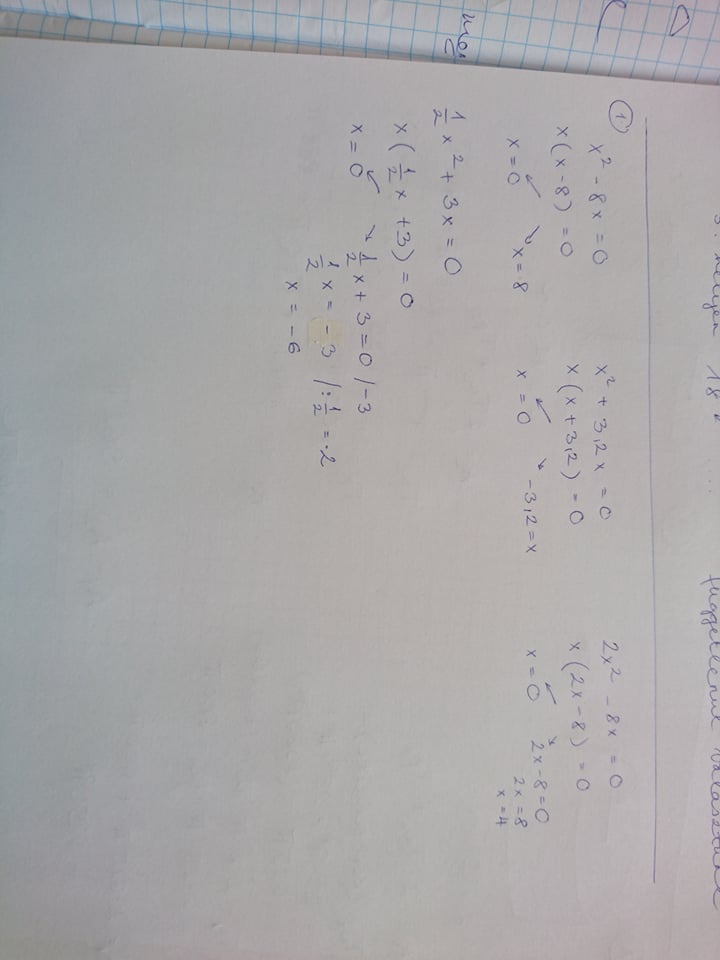 ①
x² - 8x = 0
x(x-8) = 0
x = 0 x = 8
x² + 3,2x = 0
x(x+3,2) = 0
x = 0 -3,2 = x
2x² - 8x = 0
x(2x-8) = 0
x = 0 2x-8=0
2x = 8
x = 4
1/2 x² + 3x = 0
x(1/2 x + 3) = 0
x = 0 1/2 x + 3 = 0 /-3
1/2 x = -3 /:1/2 = ·2
x = -6